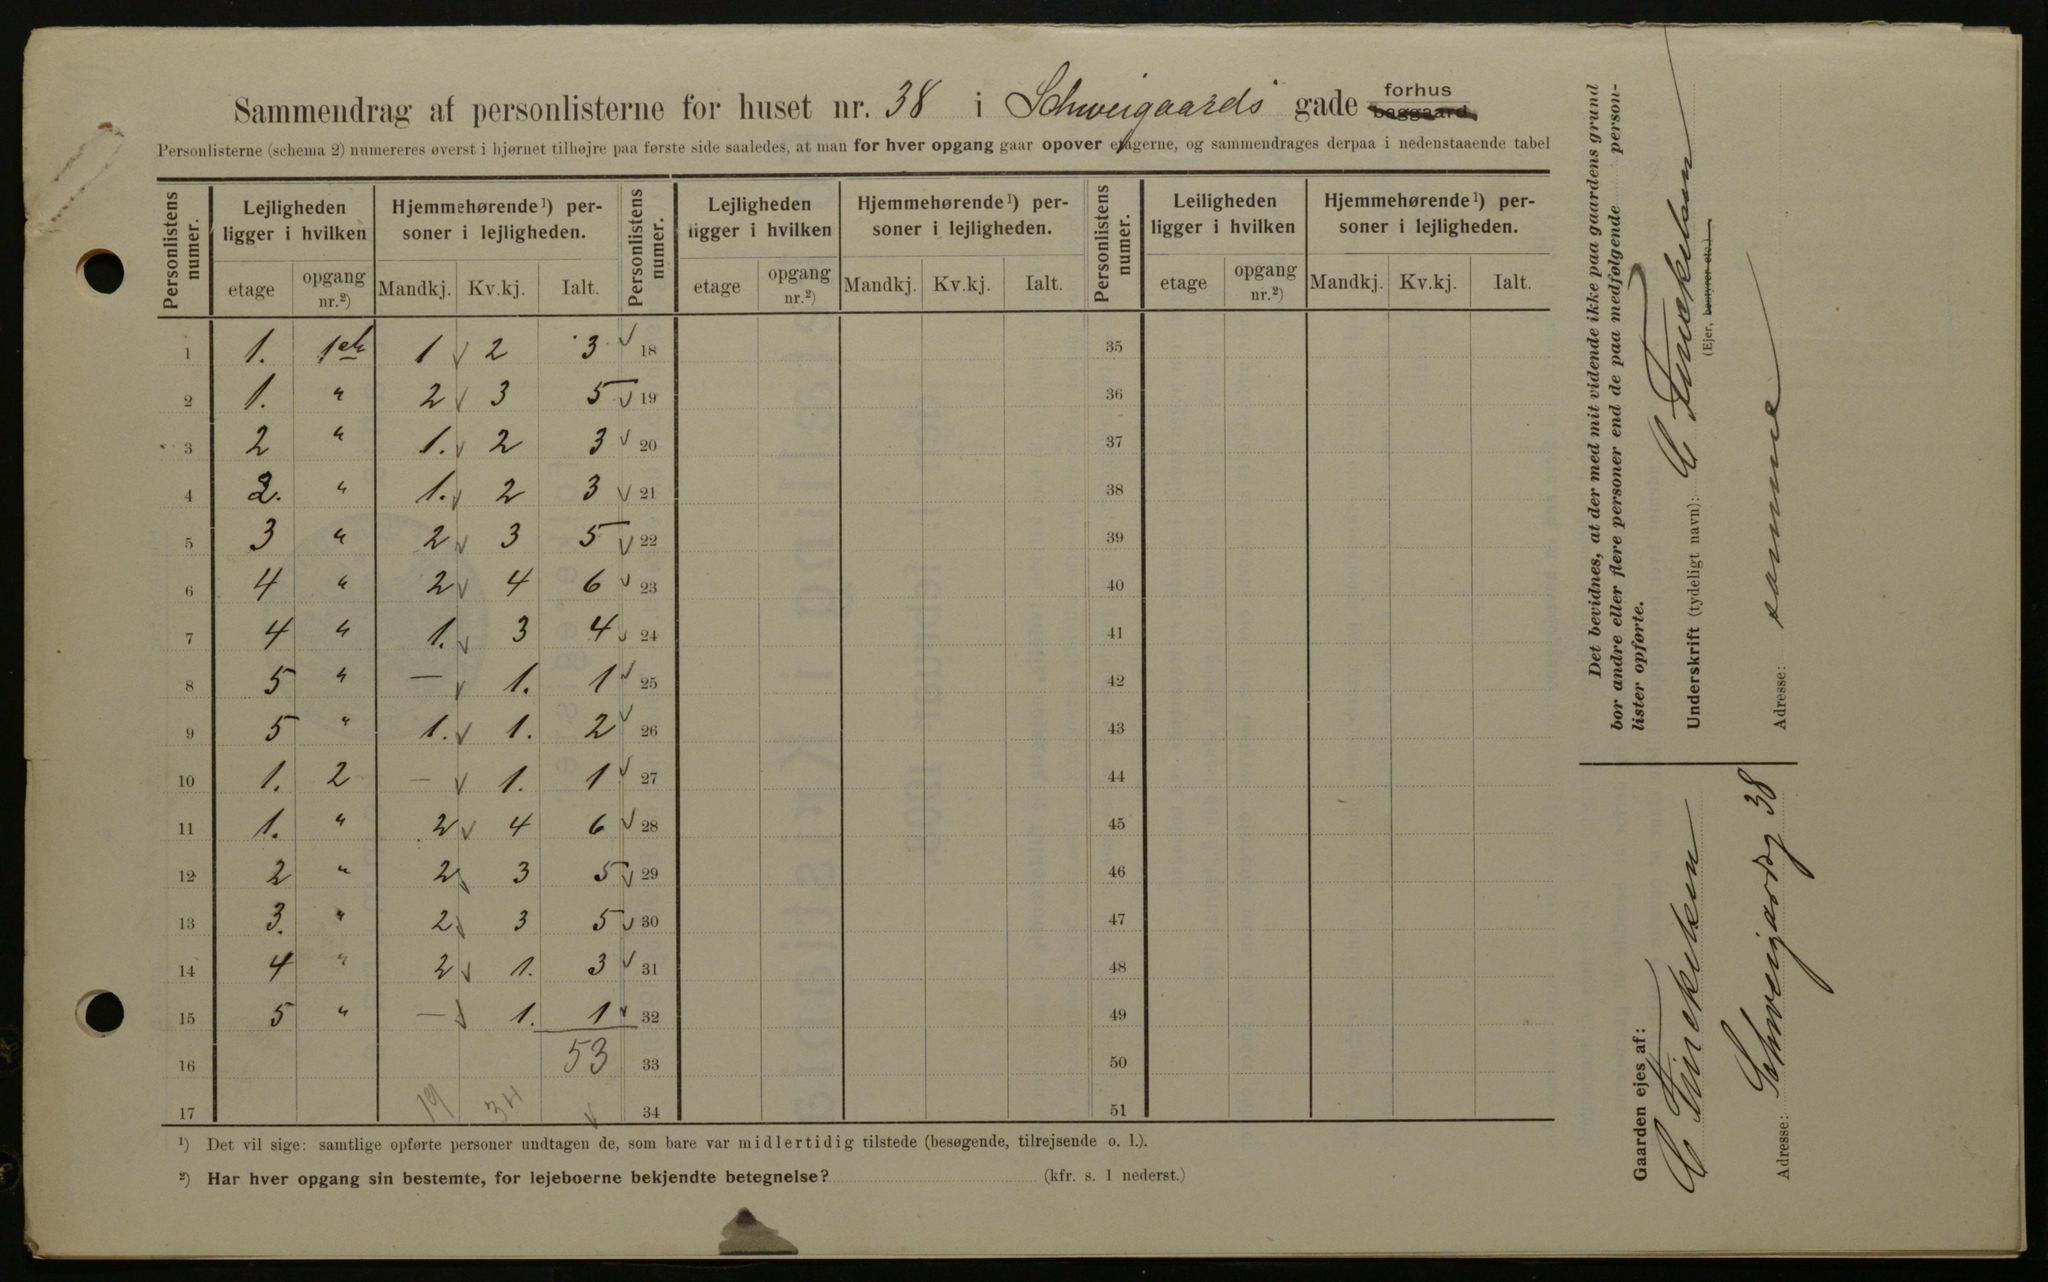 Sammendrag af personlisterne for huset nr. 38 i Schweigaards gade forhus baggaard.
Personlisterne (schema 2) numereres øverst i hjørnet tilhøjre paa første side saaledes, at man for hver opgang gaar opover etagerne, og sammendrages derpaa i nedenstaaende tabel
Personlistens numer. Lejligheden ligger i hvilken Hjemmehørende¹) personer i lejligheden. Personlistens numer. Lejligheden ligger i hvilken Hjemmehørende¹) personer i lejligheden. Personlistens numer. Leiligheden ligger i hvilken Hjemmehørende¹) personer i lejligheden.
etage opgang nr.²) Mandkj. Kv.kj. Ialt. etage opgang nr.²) Mandkj. Kv.kj. Ialt. etage opgang nr.²) Mandkj. Kv.kj. Ialt.
1 1. 1 1 2 3 18 35
2 1. " 2 3 5 19 36
3 2 " 1. 2 3 20 37
4 " 1. 2 3 21 38
5 3 " 2 3 5 22 39
6 4 " 2 4 6 23 40
7 4 " 1. 3 4 24 41
8 5 " — 1. 1 25 42
9 5 " 1. 1. 2 26 43
10 1. 2 — 1. 1 27 44
11 1. " 2 4 6 28 45
12 2 " 2 3 5 29 46
13 3. " 2 3 5 30 47
14 4 " 2 1. 3 31 48
15 5 " — 1. 1 32 49
16 53 33 50
17 19 34 34 51
¹) Det vil sige: samtlige opførte personer undtagen de, som bare var midlertidig tilstede (besøgende, tilrejsende o. l.).
²) Har hver opgang sin bestemte, for lejeboerne bekjendte betegnelse? (kfr. s. 1 nederst.)
Det bevidnes, at der med mit vidende ikke paa gaardens grund
bor andre eller flere personer end de paa medfølgende person-
lister opførte.
Underskrift (tydeligt navn):
(Ejer, bestyrer etc.)
Adresse: samme
Gaarden ejes af:
Adresse: Schweigaardsg 38